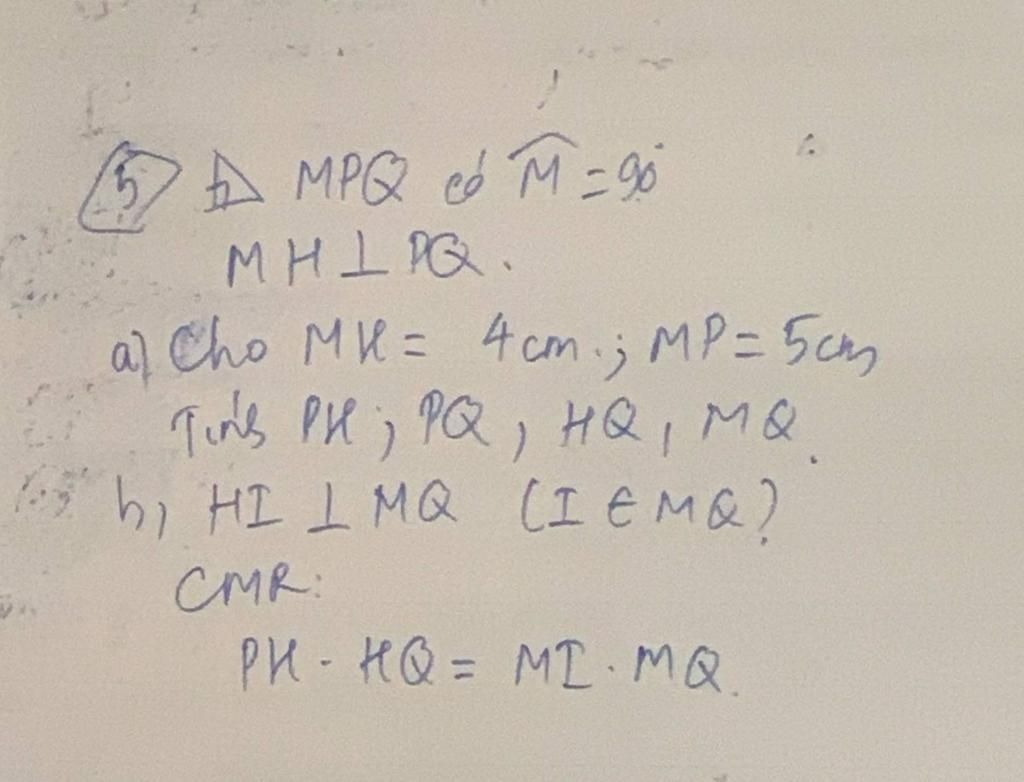 5 △ MPQ có M̂ = 90°
MH ⊥ PQ.
a) Cho MH = 4cm.; MP = 5cm
Tính PH; PQ, HQ, MQ.
b, HI ⊥ MQ (I ∈ MQ)
CMR:
PH . HQ = MI . MQ.